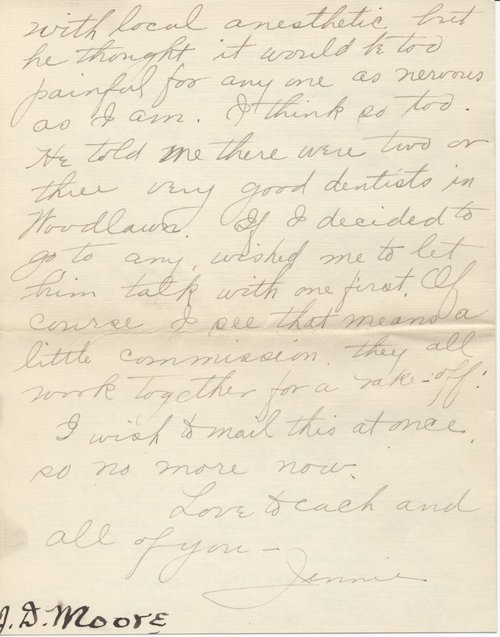 with local anesthetic but
he thought it would be too
painful for any one as nervous
as I am. I think so too.
He told me there were two or
three very good dentists in
Woodlawn. If I decided to
go to any, wished me to let
him talk with one first. Of
course I see that means a
little commission. they all
work together for a rake-off!
I wish to mail this at once,
so no more now.
Love to each and
all of you —
Jennie
J. D. Moore